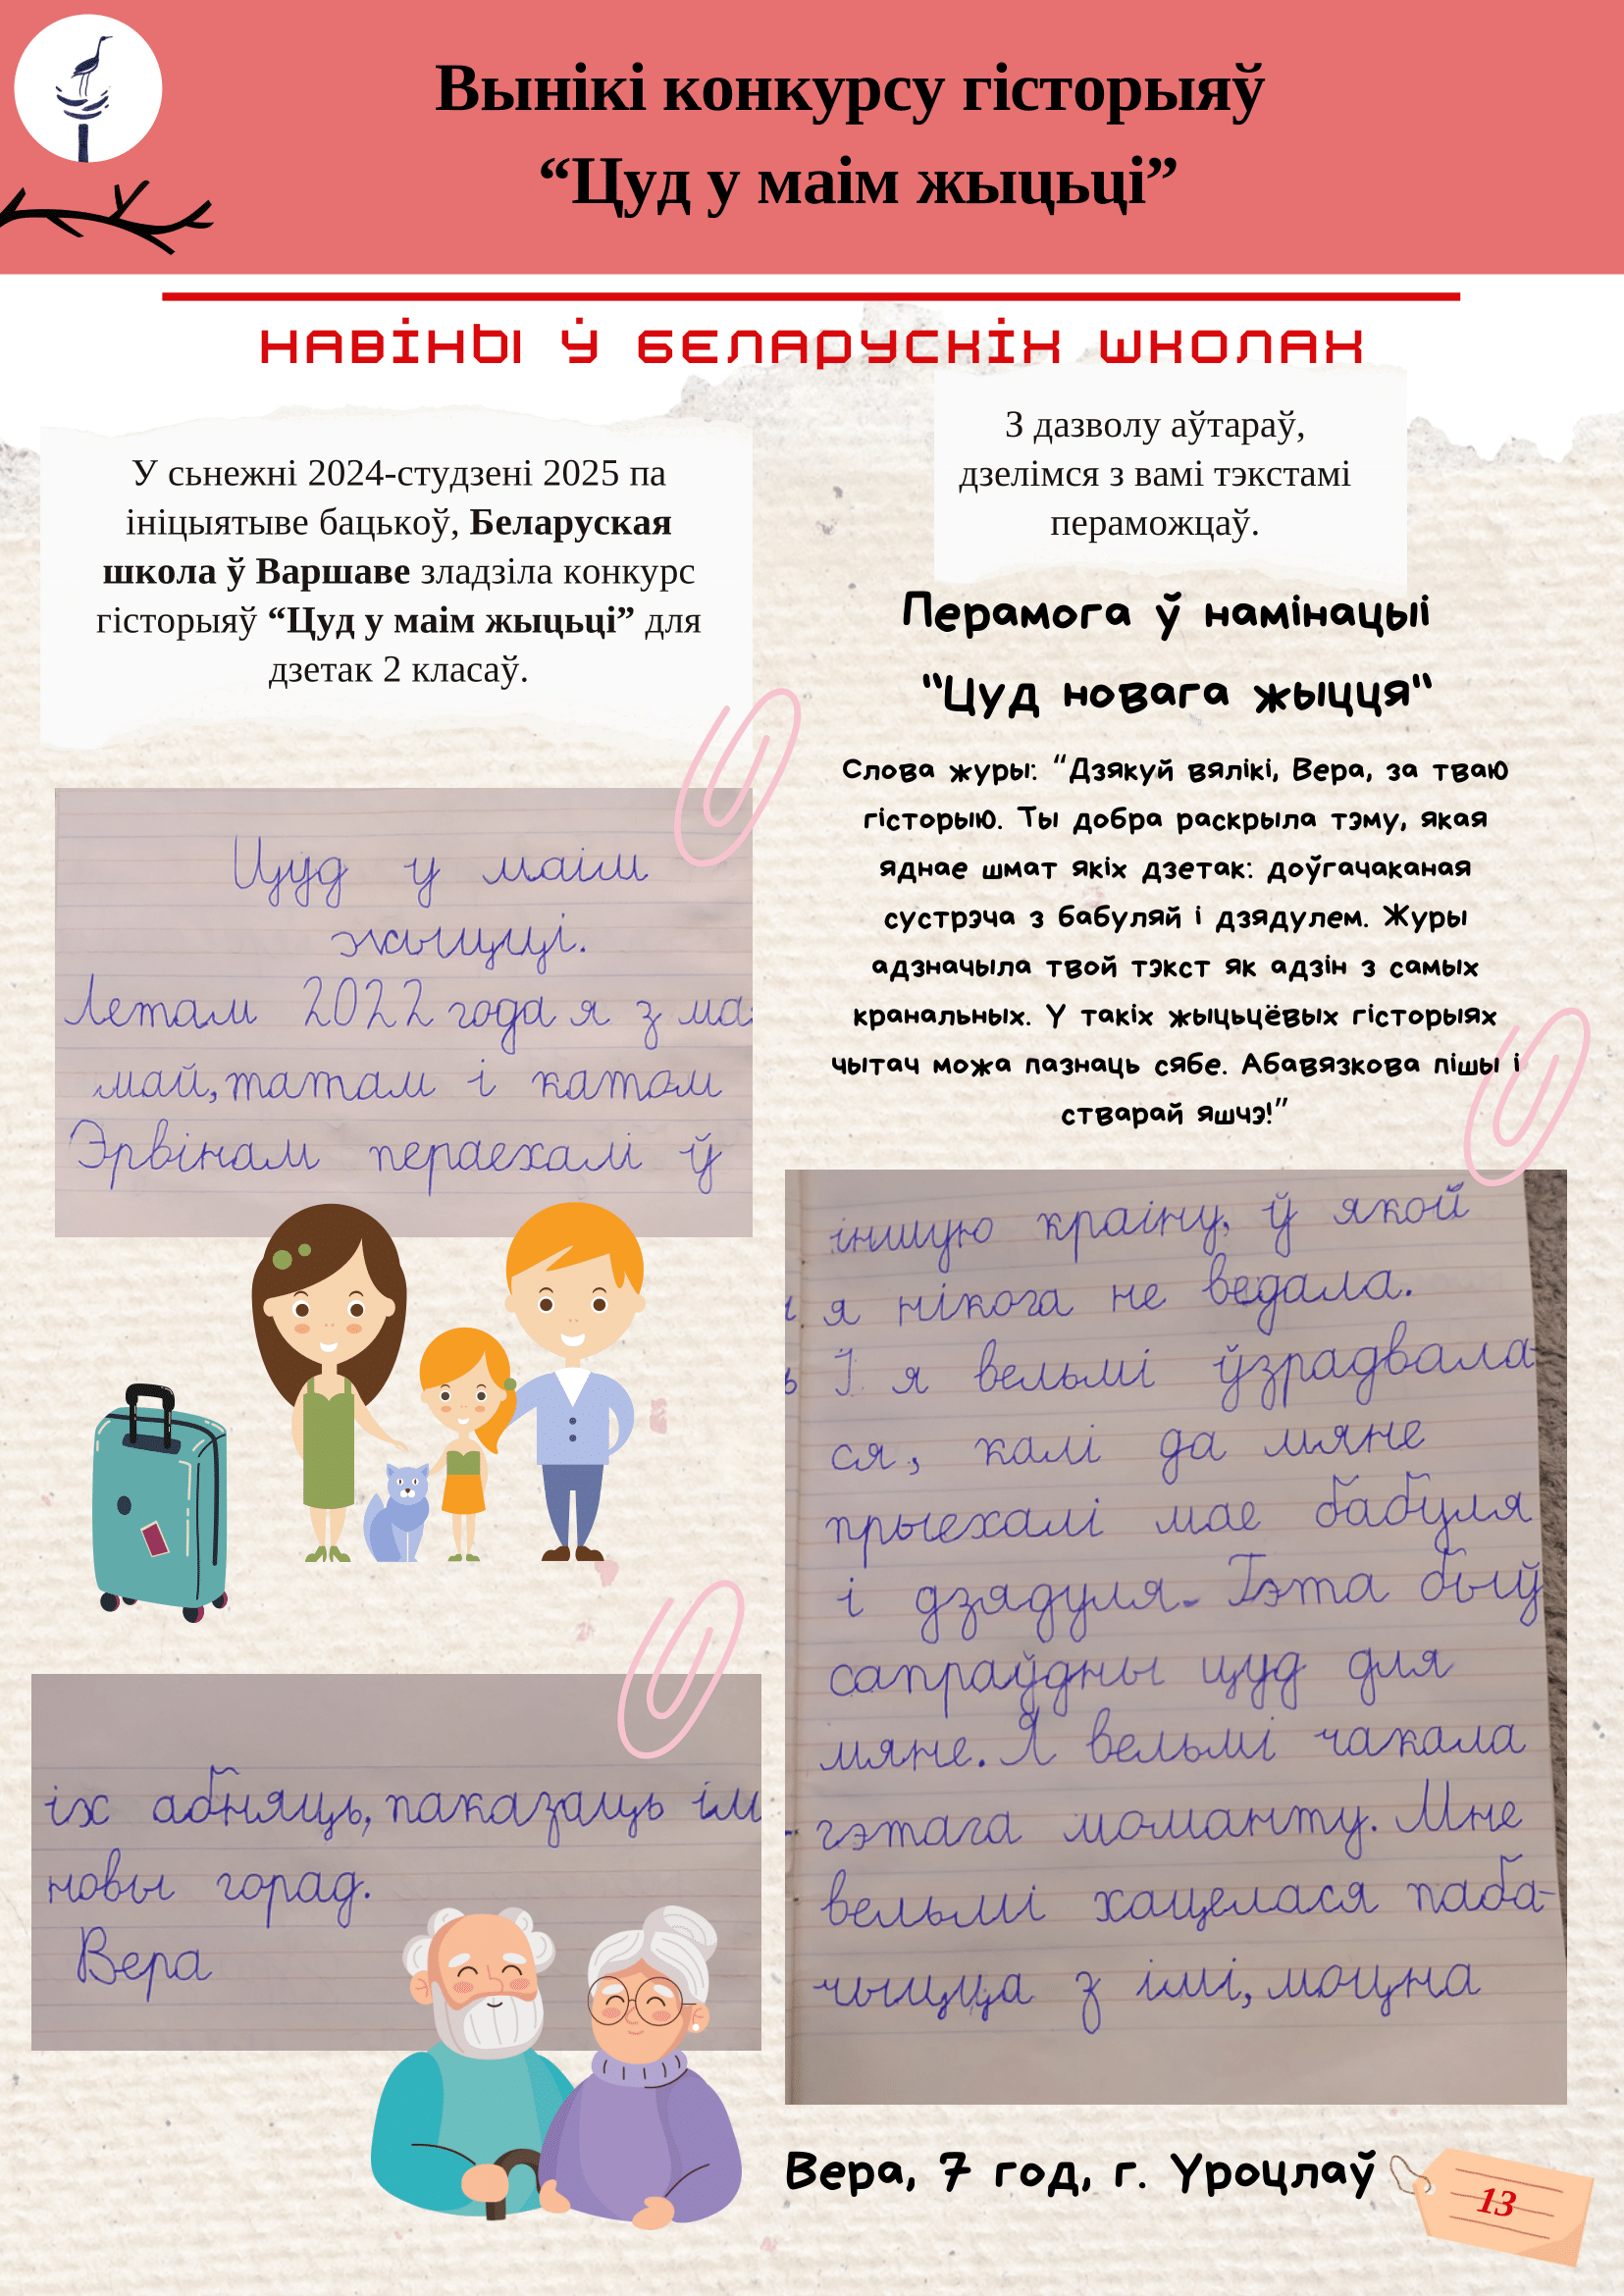 Вынікі конкурсу гісторыяў
“Цуд у маім жыцьці”
НАВІНЫ Ў БЕЛАРУСКІХ ШКОЛАХ
У сьнежні 2024-студзені 2025 па
ініцыятыве бацькоў, Беларуская
школа ў Варшаве зладзіла конкурс
гісторыяў “Цуд у маім жыцьці” для
дзетак 2 класаў.
З дазволу аўтараў,
дзелімся з вамі тэкстамі
пераможцаў.
Перамога ў намінацыі
"Цуд новага жыцця"
Слова журы: “Дзякуй вялікі, Вера, за тваю
гісторыю. Ты добра раскрыла тэму, якая
яднае шмат якіх дзетак: доўгачаканая
сустрэча з бабуляй і дзядулем. Журы
адзначыла твой тэкст як адзін з самых
кранальных. У такіх жыцьцёвых гісторыях
чытач можа пазнаць сябе. Абавязкова пішы і
ствaрай яшчэ!”
Цуд у маім
жыцці.
Летам 2022 года я з ма-
май, татам і катом
Эрвінам пераехалі ў
іншую краіну, ў якой
я нікога не ведала.
І я вельмі ўзрадвала
ся, калі да мяне
прыехалі мае бабуля
і дзядуля. Гэта быў
сапраўдны цуд для
мяне. Я вельмі чакала
гэтага моманту. Мне
вельмі хацелася паба-
чыцца з імі, моцна
іх абняць, паказаць ім
новы горад.
Вера
Вера, 7 год, г. Уроцлаў
13